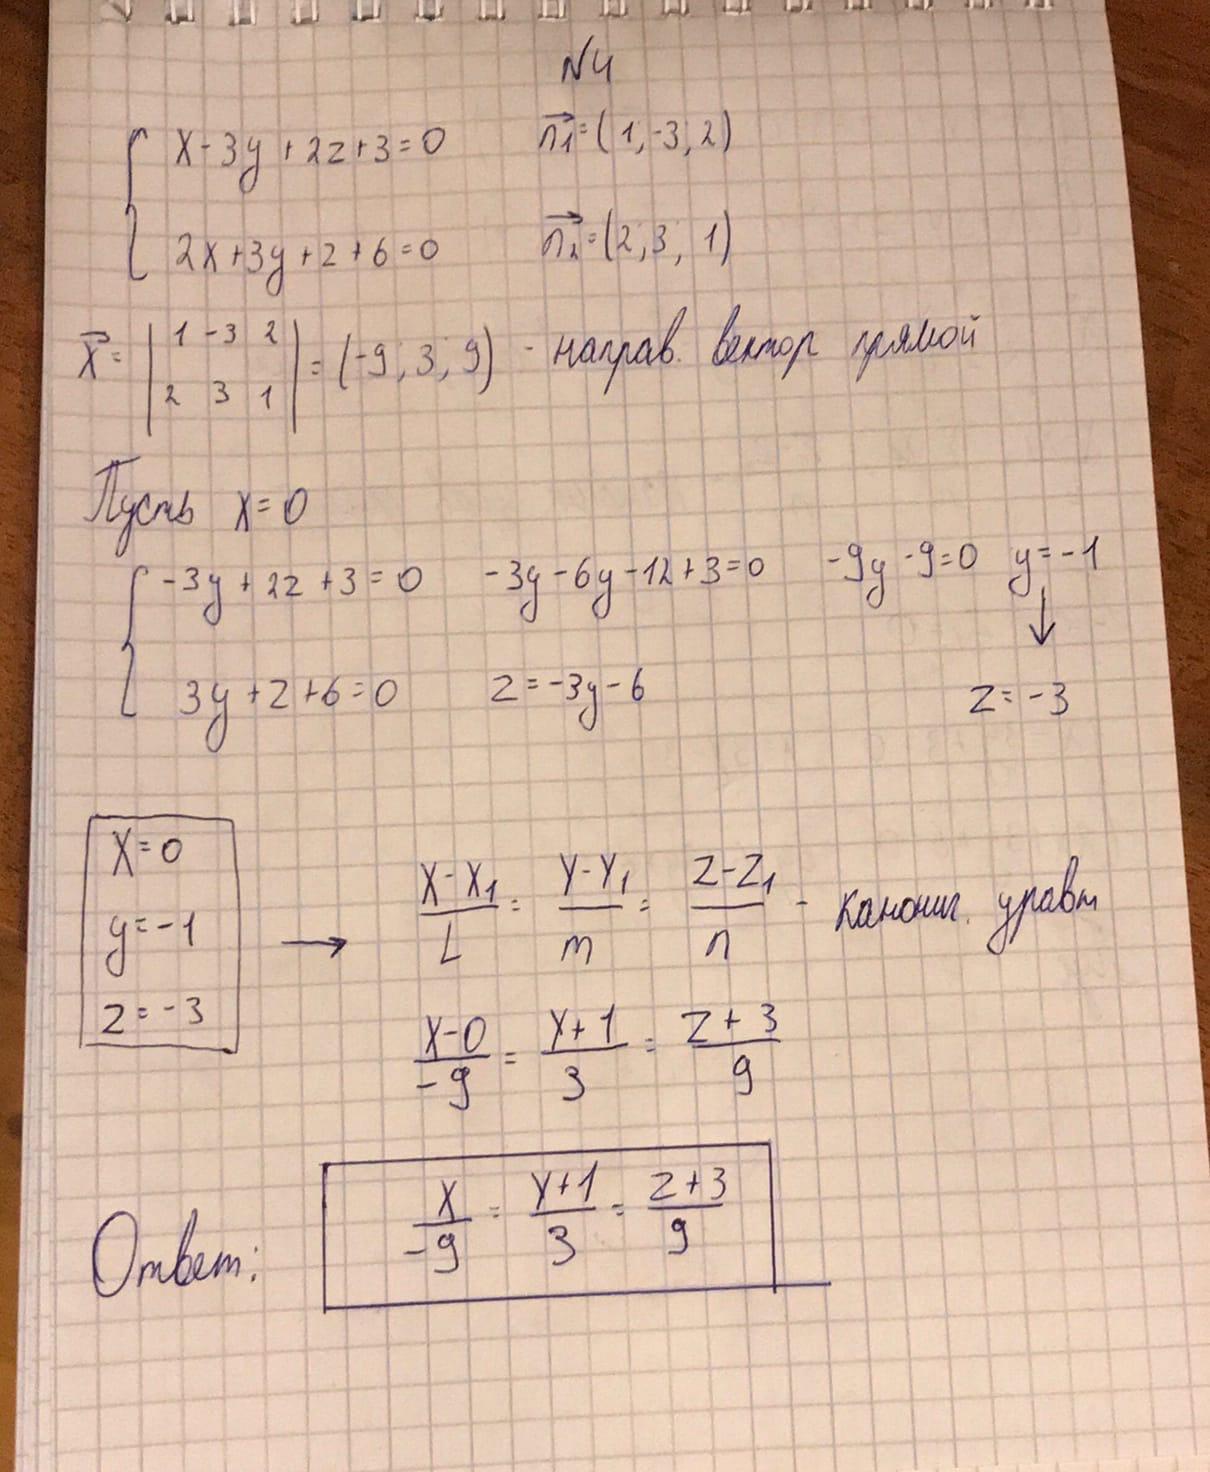 N4
x-3y+2z+3=0 n1=(1,-3;2)
2x+3y+z+6=0 n2=(2;3,1)
x= |1 -3 2| =(-9;3;9) - направ. вектор прямой
|2 3 1|
Пусть x=0
-3y+2z+3=0 -3y-6y-12+3=0 -9y-9=0 y=-1
↓
3y+z+6=0 z=-3y-6 z=-3
x=0
y=-1
z=-3
→ x-x1/L = y-y1/m = z-z1/n - канонич. уравн
x-0/-9 = y+1/3 = z+3/9
Ответ: x/-9 = y+1/3 = z+3/9